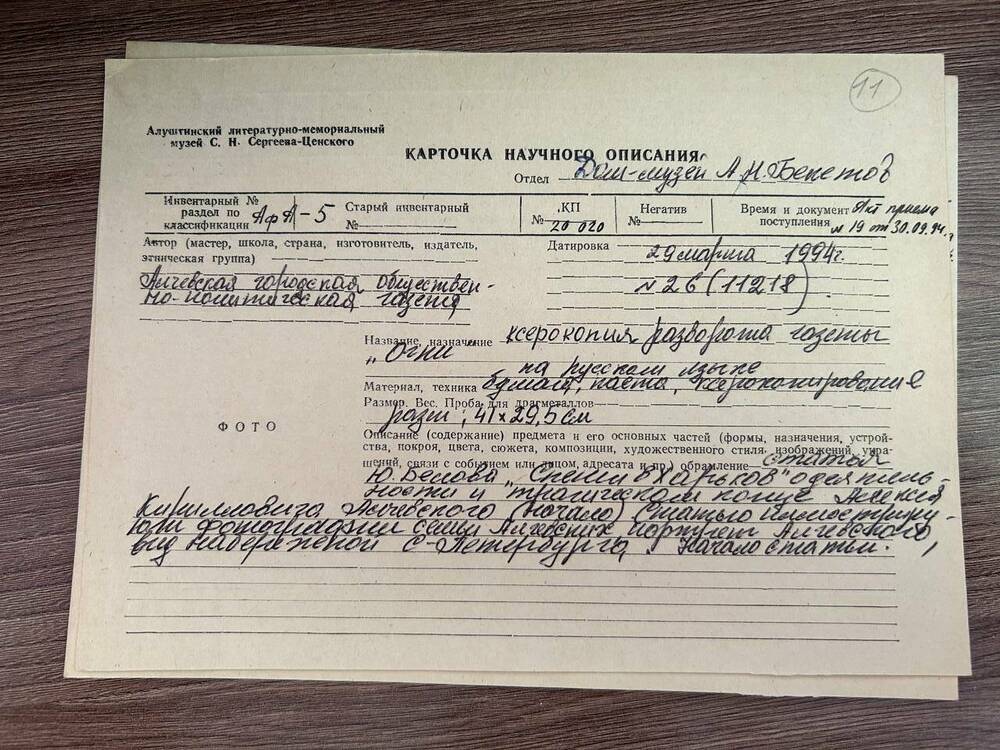 11
Алуштинский литературно-мемориальный
музей С. Н. Сергеева-Ценского
КАРТОЧКА НАУЧНОГО ОПИСАНИЯ
Отдел Дом-музей А.Н.Бекетов
Инвентарный №
раздел по
классификации АфА-5
Старый инвентарный
№
КП
№ 20 020
Негатив
№
Время и документ Акт приема
поступления № 19 от 30.09.94г.
Автор (мастер, школа, страна, изготовитель, издатель,
этническая группа)
Алчевская городская обществен-
но-политическая газета
Датировка 29 марта 1994г.
№ 26 (11218)
Название, назначение ксерокопия разворота газеты
"Огни"
на русском языке
Материал, техника бумага, паста, ксерокопирование
Размер. Вес. Проба для драгметаллов
разм; 41×29,5 см
ФОТО
Описание (содержание) предмета и его основных частей (формы, назначения, устрой-
ства, покроя, цвета, сюжета, композиции, художественного стиля, изображений, укра-
шений, связи с событием или лицом, адресата и пр.) обрамление статья
Ю. Белова "Спеши в Харьков" о деятель-
ности и трагическом конце Алексея
Кирилловича Алчевского (начало) Статью иллюстриру-
ют фотографии семьи Алчевских портрет Алчевского,
вид набережной С-Петербурга, Начало статьи.